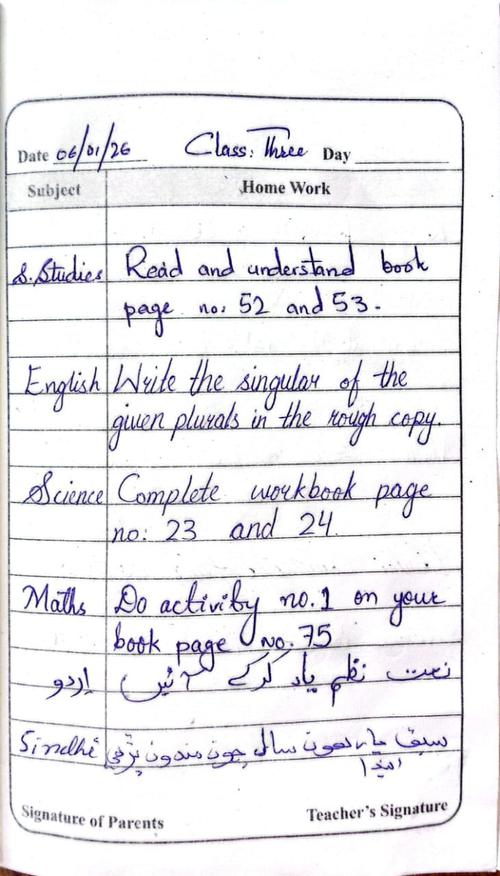 Date 06/01/26 Class: Three Day
Subject Home Work
S. Studies Read and understand book
page no: 52 and 53.
English Write the singular of the
given plurals in the rough copy.
Science Complete workbook page
no: 23 and 24
Maths Do activity no. 1 on your
book page no. 75
اردو نعت نظم یاد کرکے آئیں
Sindhi سبق سال جون مندون پڙهي
اچو
Signature of Parents Teacher's Signature